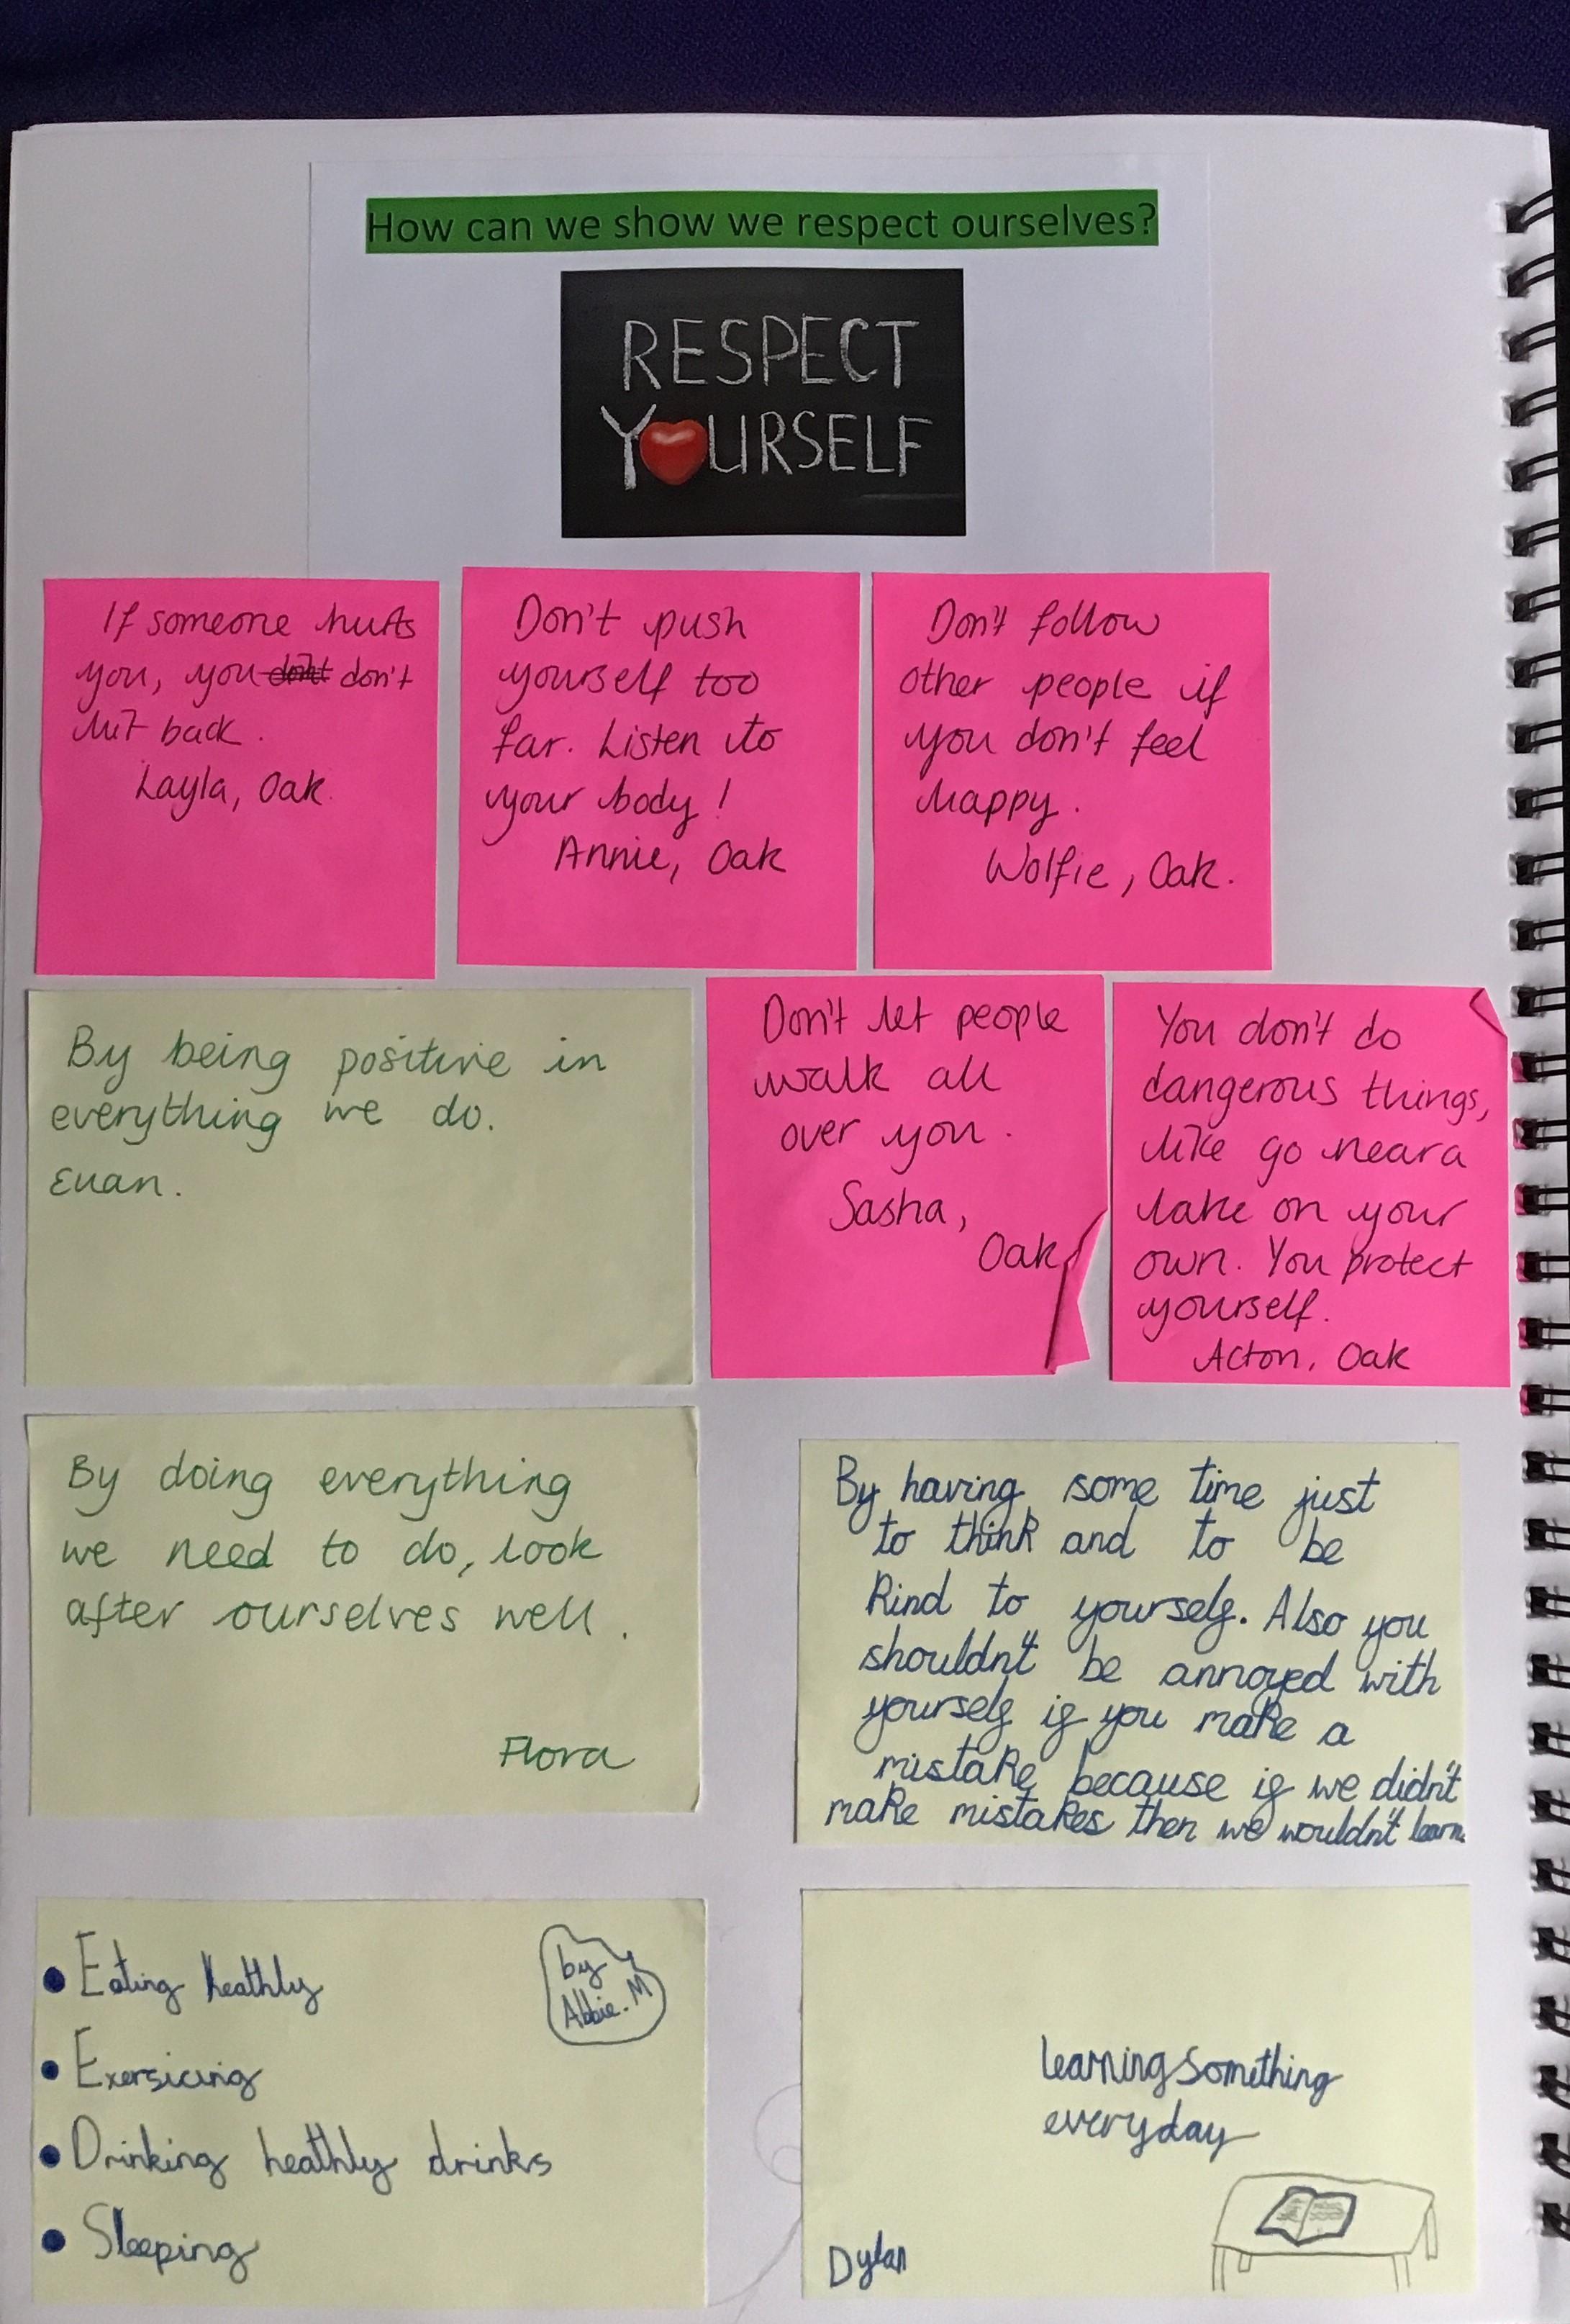 How can we show we respect ourselves?
RESPECT
YOURSELF
If someone hurts
you, you don't don't
hit back.
Layla, Oak.
Don't push
yourself too
far. Listen to
your body!
Annie, Oak
Don't follow
other people if
you don't feel
happy.
Wolfie, Oak.
By being positive in
everything we do.
Euan.
Don't let people
walk all
over you.
Sasha,
Oak
You don't do
dangerous things,
like go near a
lake on your
own. You protect
yourself.
Acton, Oak
By doing everything
we need to do, look
after ourselves well.
Flora
By having some time just
to think and to be
kind to yourself. Also you
shouldn't be annoyed with
yourself if you make a
mistake because if we didn't
make mistakes then we wouldn't learn.
• Eating heathly
• Exersicing
• Drinking heathly drinks
• Sleeping
by
Abbie.M
learning something
everyday
Dylan